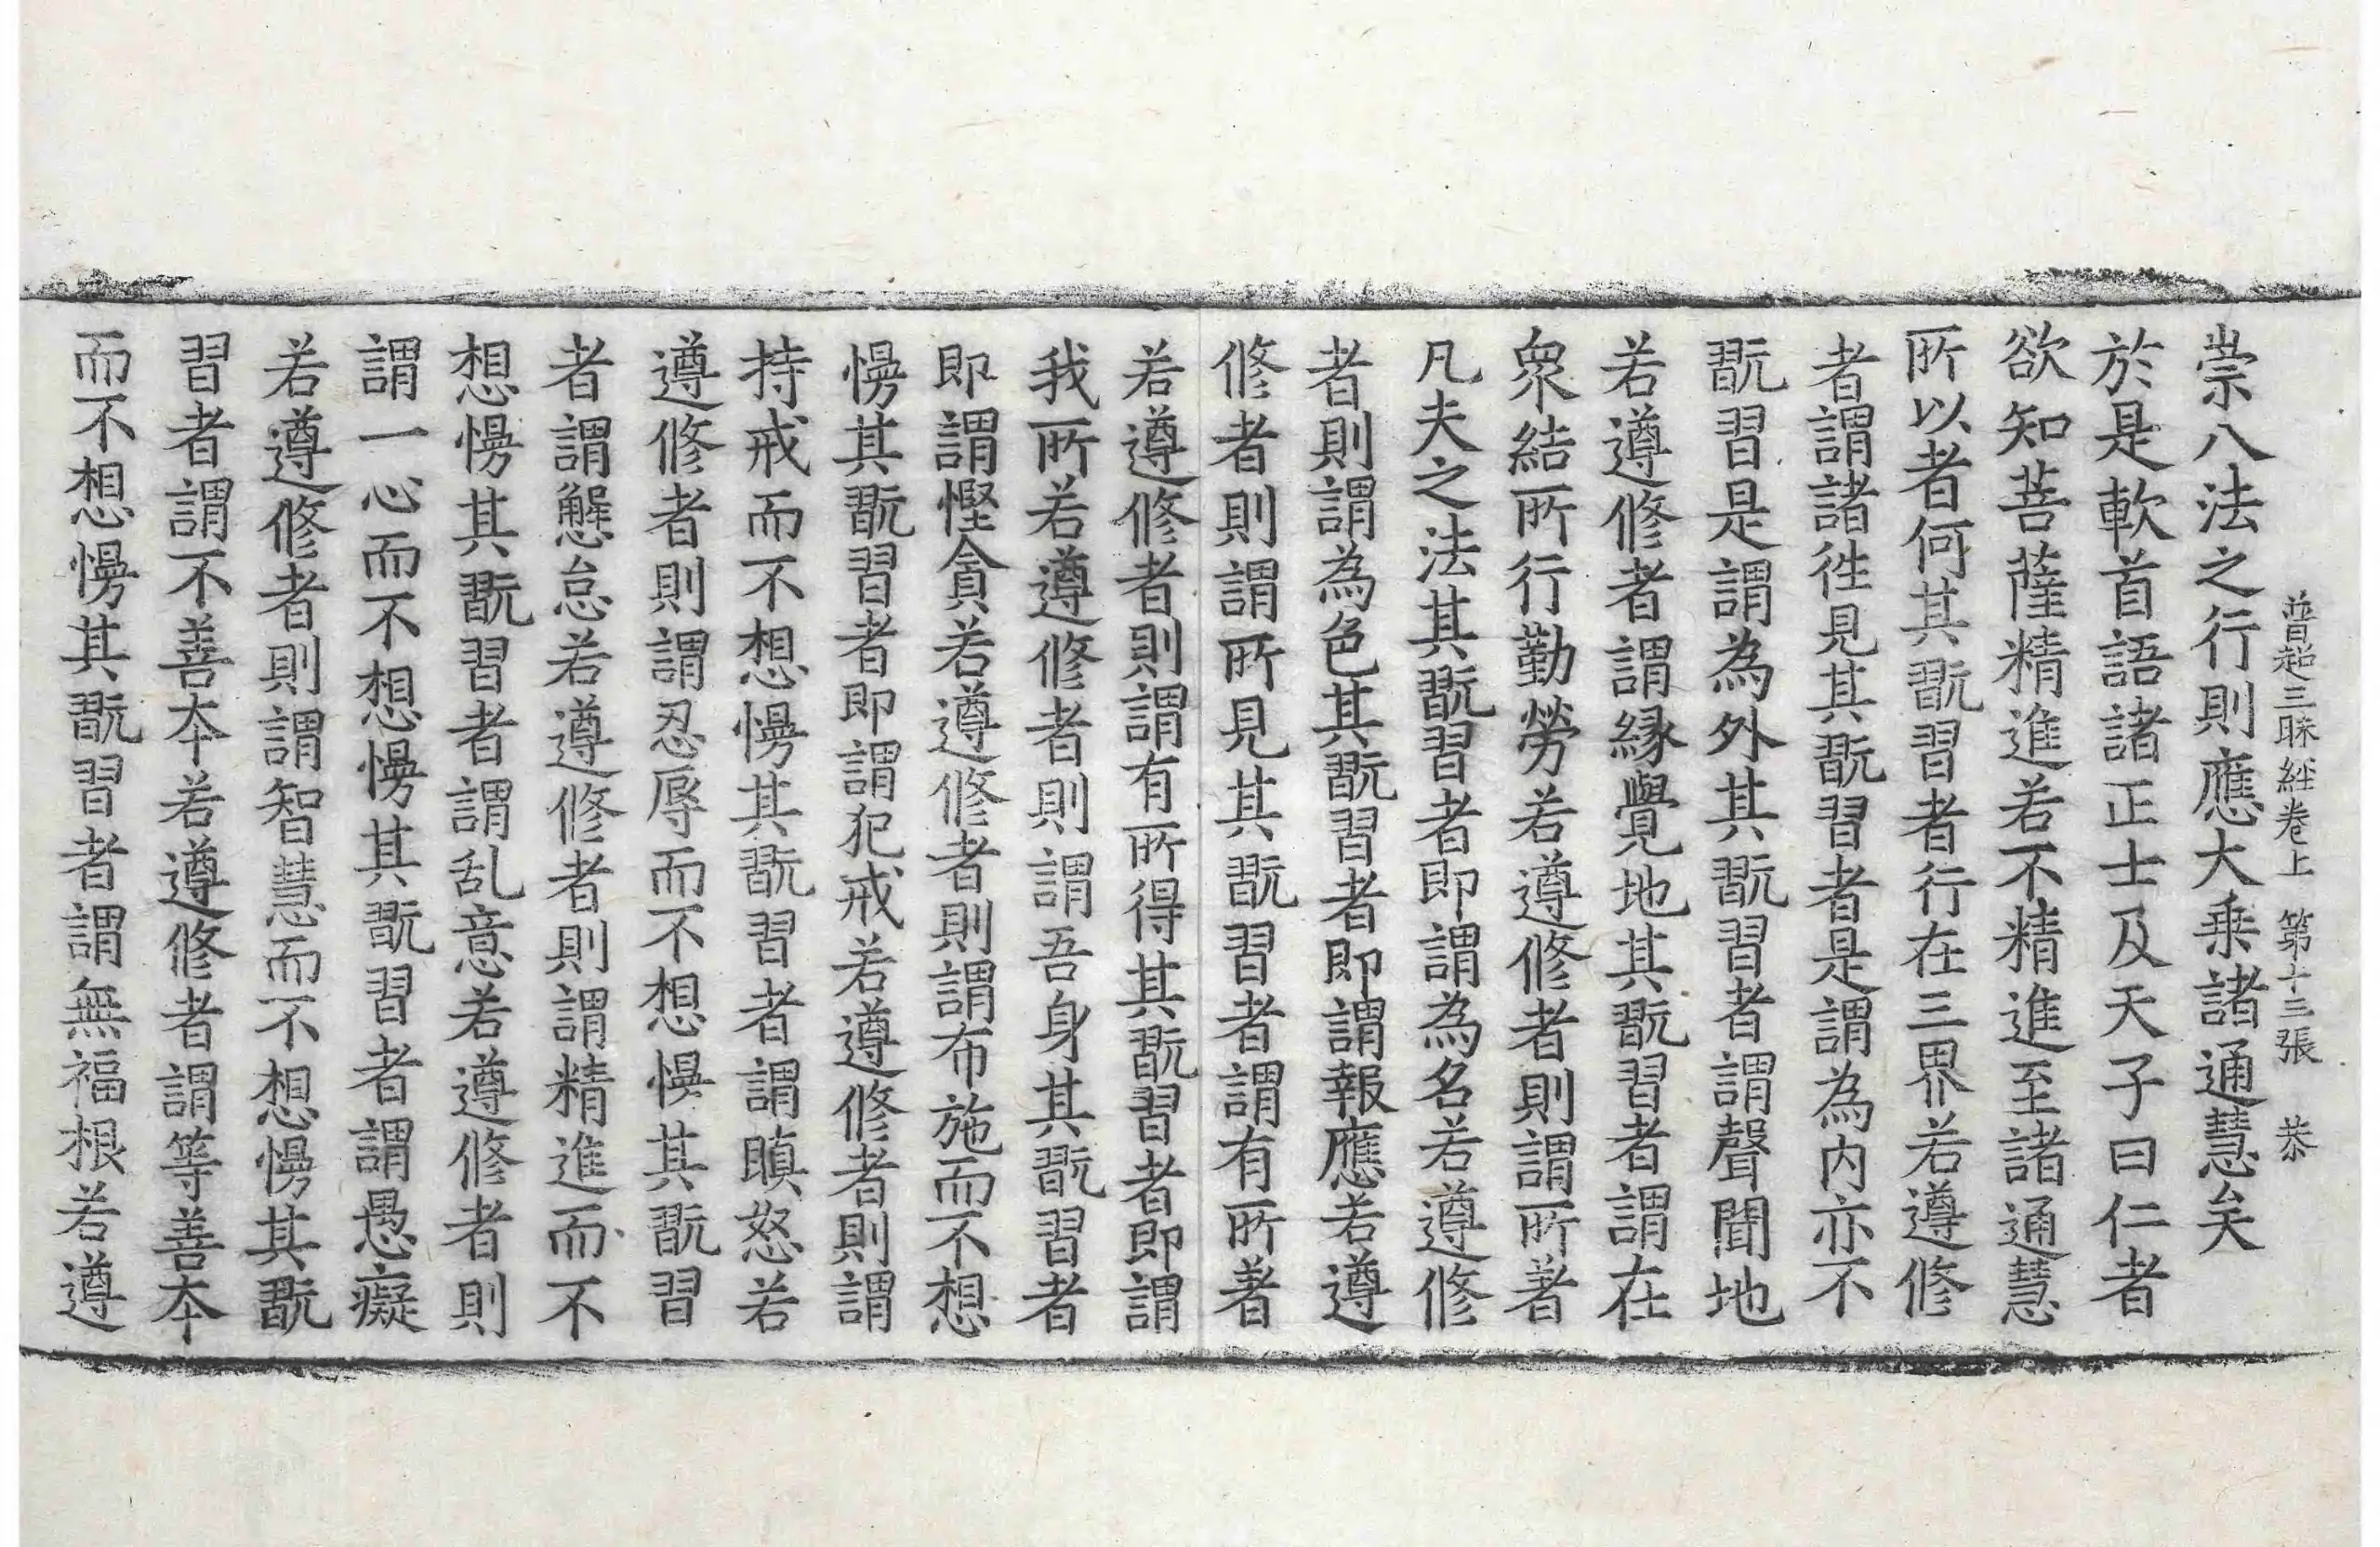 普超三昧經卷上　第十三張　恭
崇八法之行則應大乗諸通慧矣
於是軟首語諸正士及天子曰仁者
欲知菩薩精進若不精進至諸通慧
所以者何其翫習者行在三界若遵修
者謂諸徃見其翫習者是謂為内亦不
翫習是謂為外其翫習者謂聲聞地
若遵修者謂縁覺地其翫習者謂在
衆結所行勤勞若遵修者則謂所著
凡夫之法其翫習者即謂為名若遵修
者則謂為色其翫習者即謂報應若遵
修者則謂所見其翫習者謂有所著
若遵修者則謂有所得其翫習者即謂
我所若遵修者則謂吾身其翫習者
即謂慳貪若遵修者則謂布施而不想
慢其翫習者即謂犯戒若遵修者則謂
持戒而不想慢其翫習者謂瞋怒若
遵修者則謂忍辱而不想慢其翫習
者謂懈怠若遵修者則謂精進而不
想慢其翫習者謂乱意若遵修者則
謂一心而不想慢其翫習者謂愚癡
若遵修者則謂智慧而不想慢其翫
習者謂不善夲若遵修者謂等善夲
而不想慢其翫習者謂無福根若遵